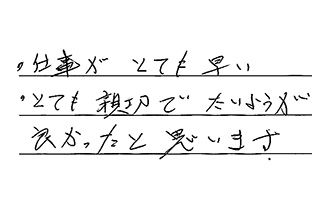 ・仕事が とても 早い
・とても 親切で たいおうが
良かったと 思います.